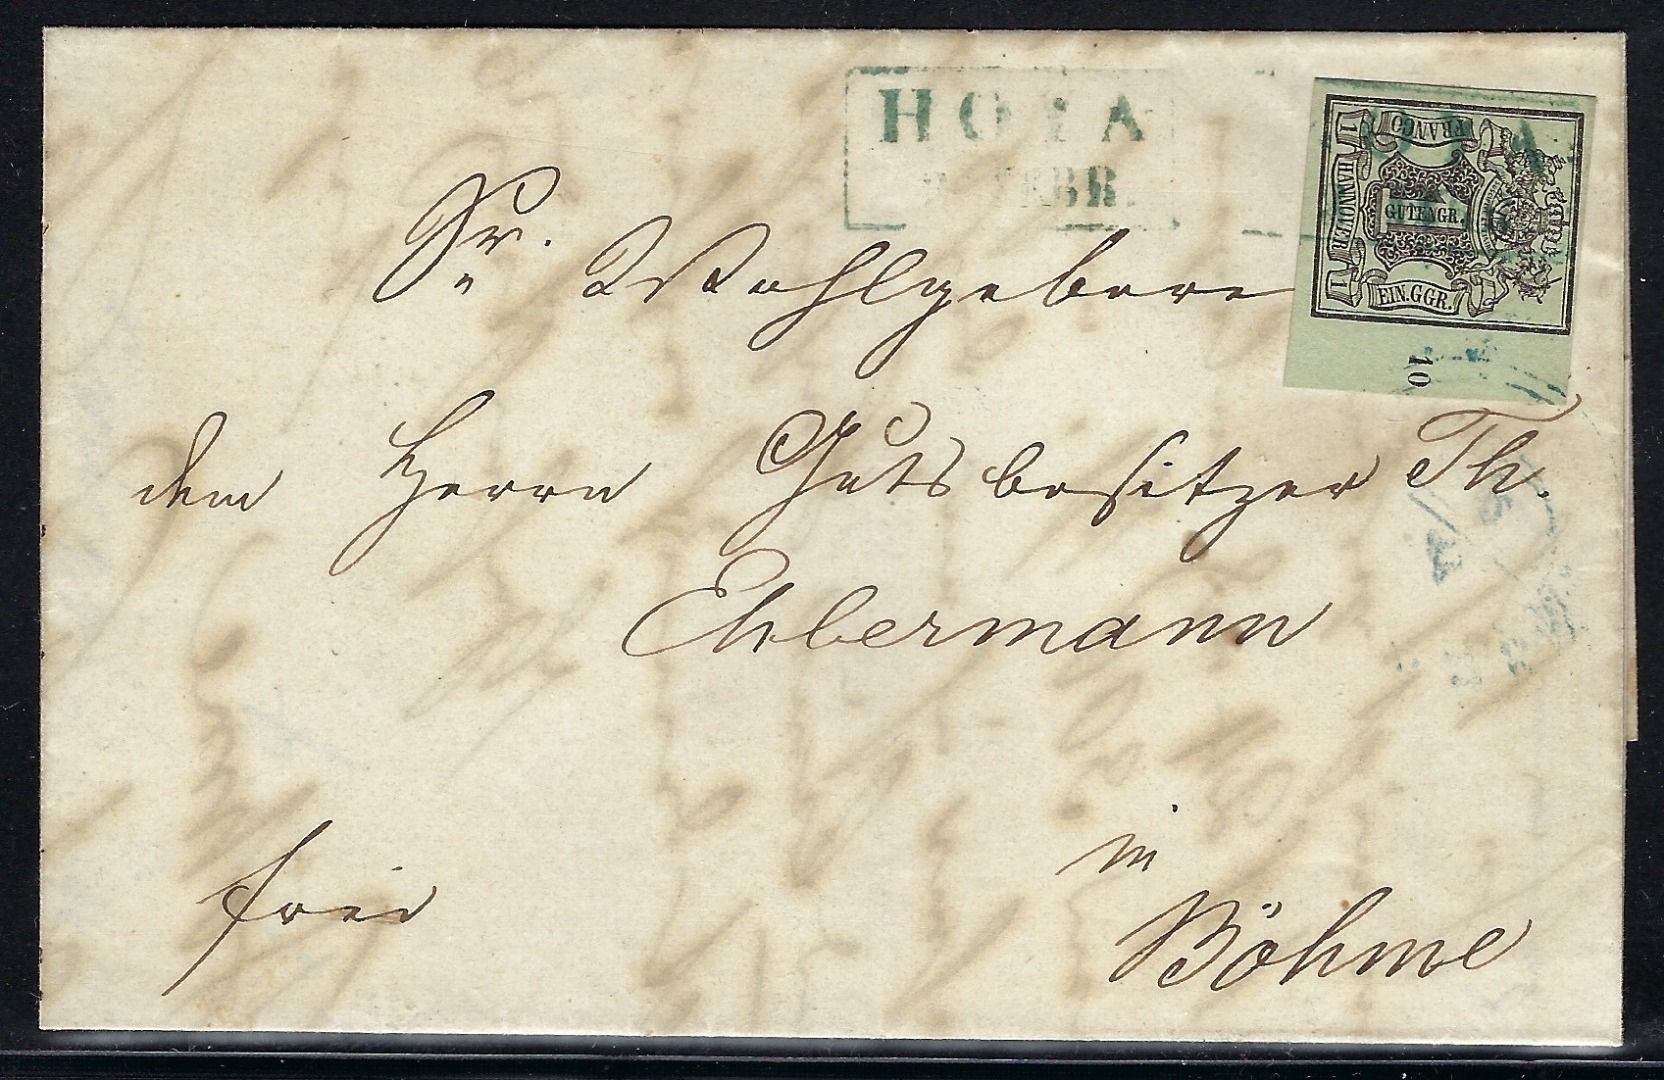 HOYA
FEBR.
FRANCO
1 HANNOVER 1
1
GUTENGR.
EIN.GGR.
10
Sr. Wohlgeboren
dem Herrn Gutsbesitzer Th.
Ebbermann
frei
in
Böhme